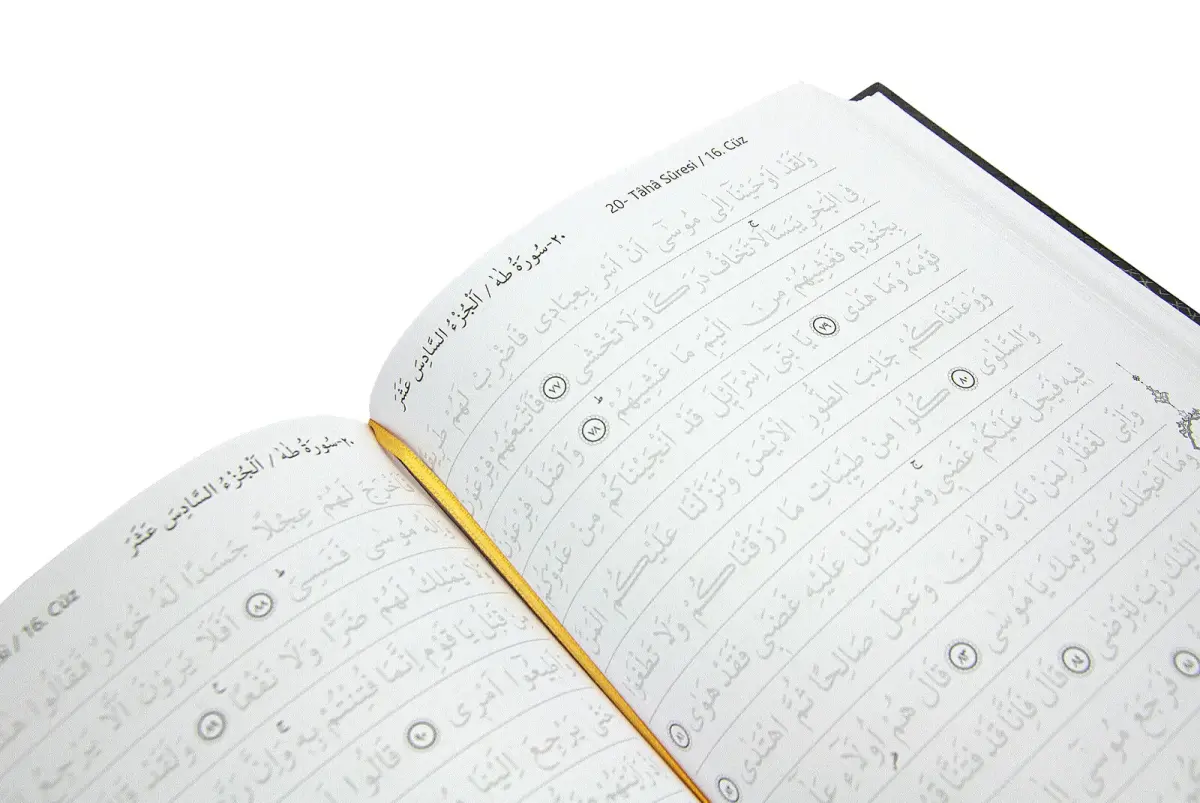 20- Tâhâ Sûresi / 16. Cüz
٢٠-سُورَةُ طٰهٰ / اَلْجُزْءُ السَّادِسَ عَشَرَ
وَلَقَدْ اَوْحَيْنَٓا اِلٰى مُوسٰٓى اَنْ اَسْرِ بِعِبَادٖى فَاضْرِبْ لَهُمْ
فِى الْبَحْرِ يَبَسًا لَا تَخَافُ دَرَكًا وَلَا تَخْشٰى ٧٧ فَاَتْبَعَهُمْ فِرْعَوْنُ
بِجُنُودِهٖ فَغَشِيَهُمْ مِنَ الْيَمِّ مَا غَشِيَهُمْ ٧٨ وَاَضَلَّ فِرْعَوْنُ
قَوْمَهُ وَمَا هَدٰى ٧٩ يَا بَنٖٓى اِسْرَٓائٖلَ قَدْ اَنْجَيْنَاكُمْ مِنْ عَدُوِّكُمْ
وَوٰعَدْنَاكُمْ جَانِبَ الطُّورِ الْاَيْمَنَ وَنَزَّلْنَا عَلَيْكُمُ الْمَنَّ
وَالسَّلْوٰى ٨٠ كُلُوا مِنْ طَيِّبَاتِ مَا رَزَقْنَاكُمْ وَلَا تَطْغَوْا
فٖيهِ فَيَحِلَّ عَلَيْكُمْ غَضَبٖى وَمَنْ يَحْلِلْ عَلَيْهِ غَضَبٖى فَقَدْ هَوٰى ٨١
وَاِنّٖى لَغَفَّارٌ لِمَنْ تَابَ وَاٰمَنَ وَعَمِلَ صَالِحًا ثُمَّ اهْتَدٰى ٨٢
وَمَٓا اَعْجَلَكَ عَنْ قَوْمِكَ يَا مُوسٰى ٨٣ قَالَ هُمْ اُو۬لَٓاءِ
اِلَيْكَ رَبِّ لِتَرْضٰى ٨٤ قَالَ فَاِنَّا قَدْ فَتَنَّا
٨٥ فَرَجَعَ مُوسٰٓى
/ 16. Cüz
٢٠-سُورَةُ طٰهٰ / اَلْجُزْءُ السَّادِسَ عَشَرَ
فَاَخْرَجَ لَهُمْ عِجْلًا جَسَدًا لَهُ خُوَارٌ فَقَالُوا
مُوسٰى فَنَسِىَ ٨٨ اَفَلَا يَرَوْنَ اَلَّا يَرْجِعُ
وَلَا يَمْلِكُ لَهُمْ ضَرًّا وَلَا نَفْعًا ٨٩ وَلَقَدْ
قَبْلُ يَا قَوْمِ اِنَّمَا فُتِنْتُمْ بِهٖ وَاِنَّ
وَاَطٖيعُٓوا اَمْرٖى ٩٠ قَالُوا
حَتّٰى يَرْجِعَ اِلَيْنَا